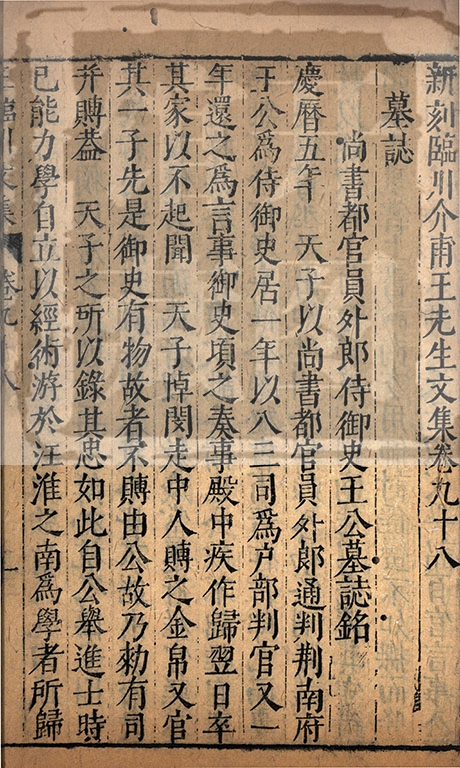 新刻臨川介甫王先生文集卷九十八
墓誌
尚書都官員外郎侍御史王公墓誌銘
慶曆五年 天子以尚書都官員外郎通判荆南府
王公爲侍御史居一年以入三司爲户部判官又一
年還之爲言事御史頃之奏事殿中疾作歸翌日卒
其家以不起聞 天子悼閔走中人賻之金帛又官
其一子先是御史有物故者不賻由公故乃勑有司
并賻葢 天子之所以錄其忠如此自公舉進士時
已能力學自立以經術游於江淮之南爲學者所歸
王臨川文集 卷九十八 一